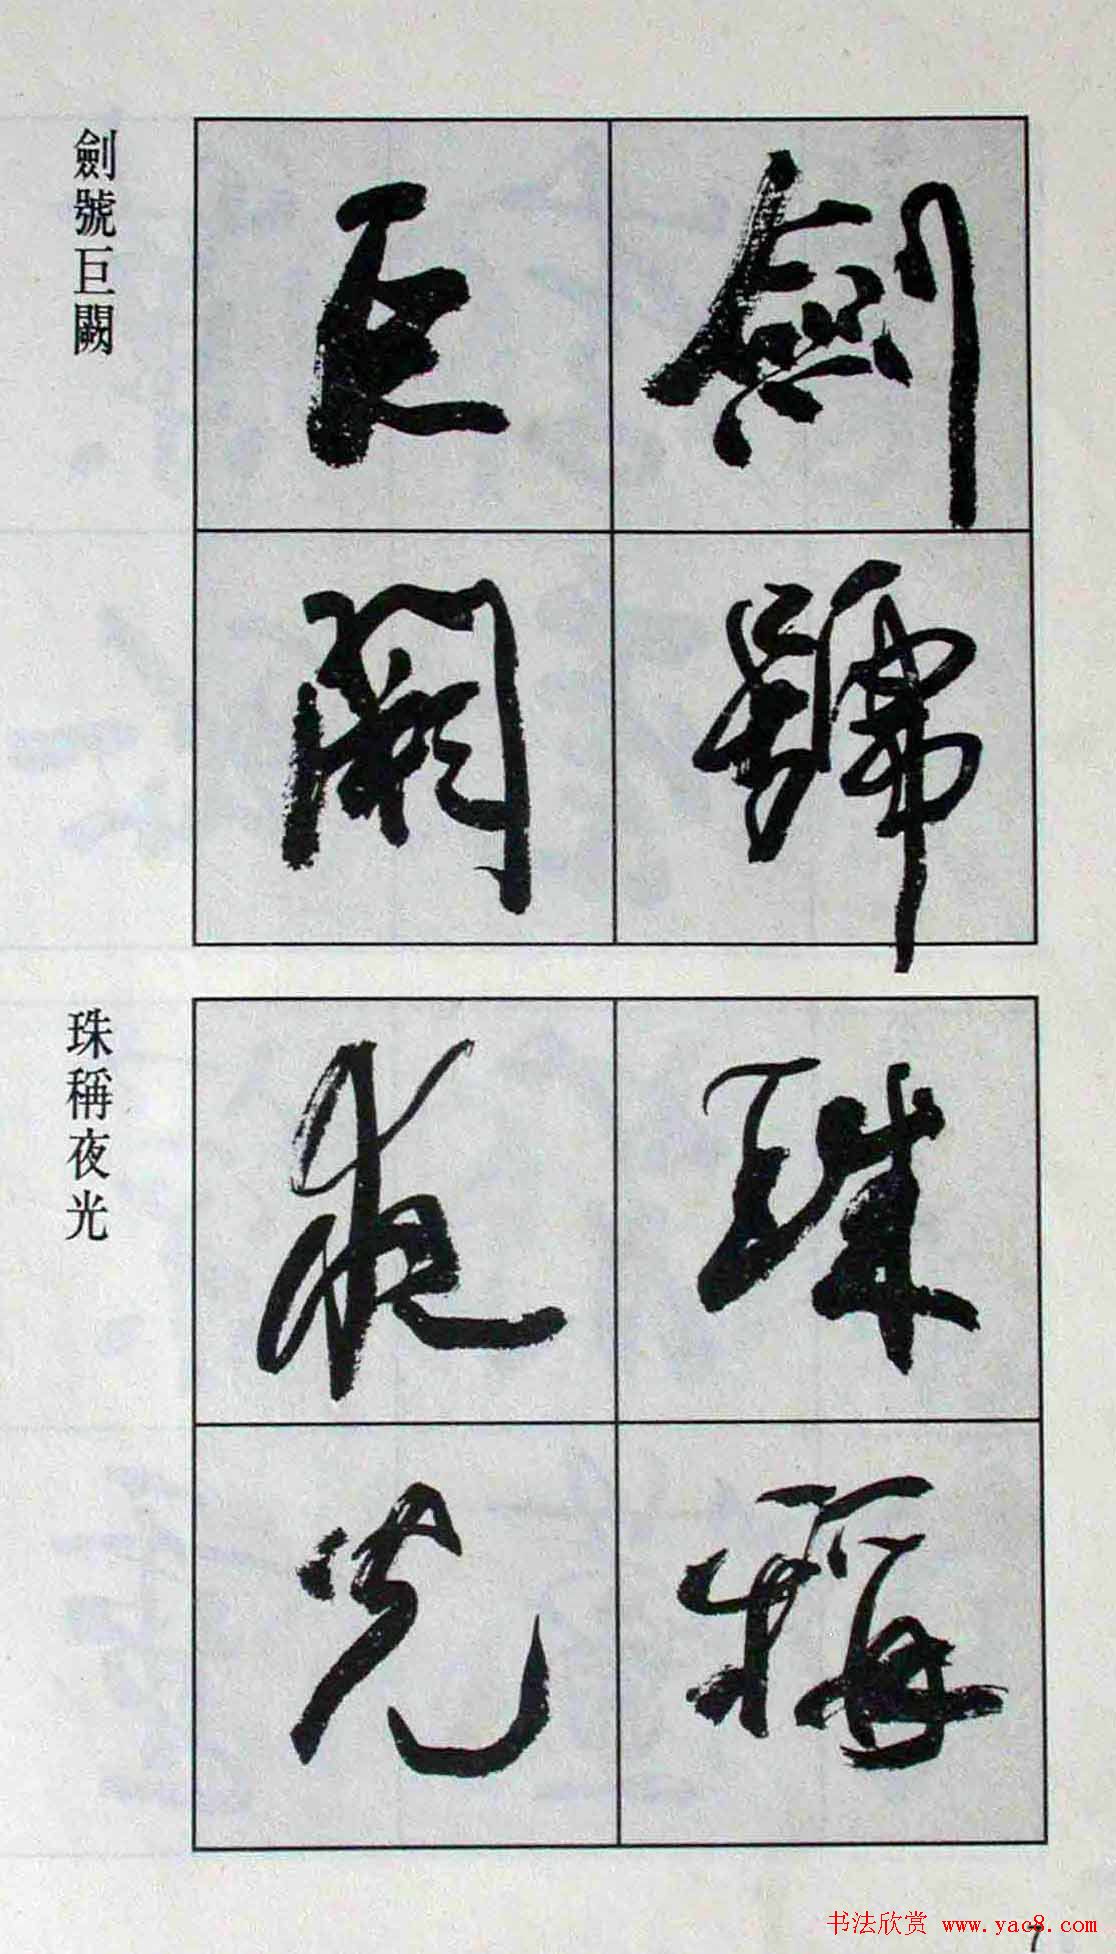 劍號
巨闕
劍號巨闕
珠稱
夜光
珠稱夜光
书法欣赏 www.yac8.com
7